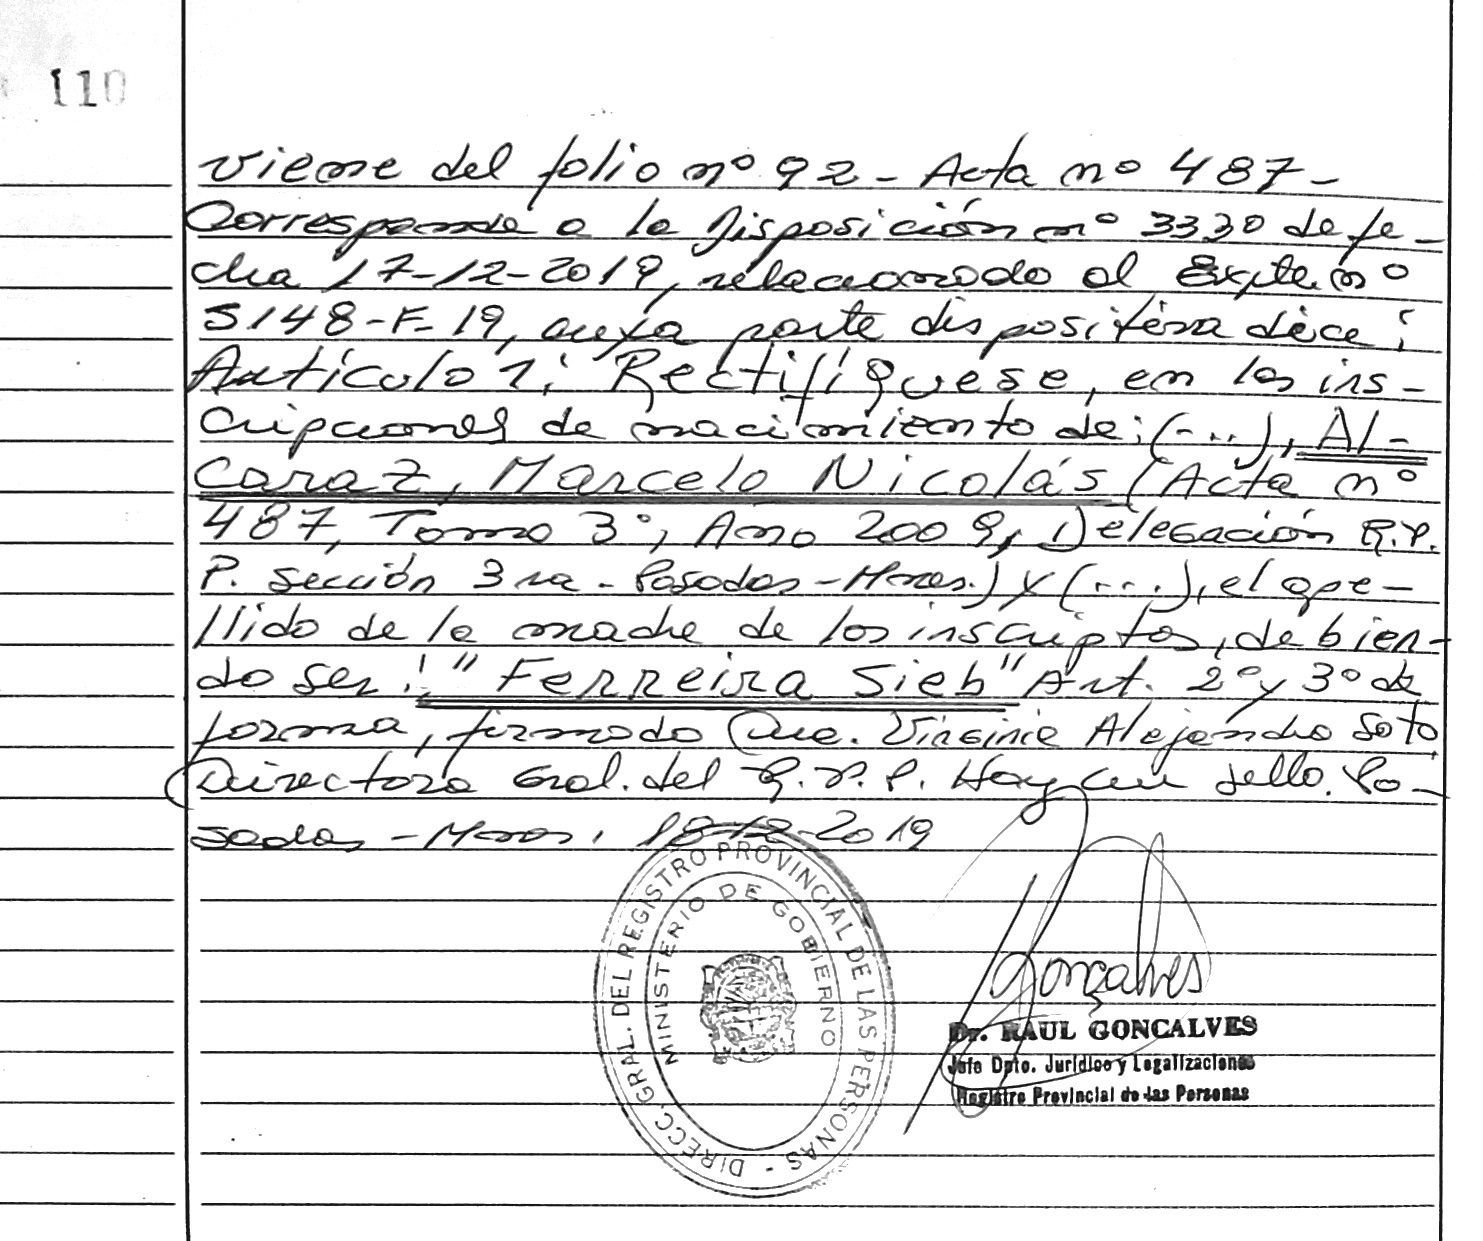 110
viene del folio nº 92 - Acta nº 487 -
Corresponde a la Disposición nº 3330 de fe-
cha 17-12-2019, relacionado al Expte. nº
5148-F-19, cuya parte dispositiva dice:
Artículo 1: Rectifíquese, en las ins-
cripciones de nacimiento de: (...), Al-
caraz, Marcelo Nicolás (Acta nº
487, Tomo 3º, Año 2009, Delegación R.P.
P. Sección 3ra - Posadas - Mnes.) y (...), el ape-
llido de la madre de los inscriptos, debien-
do ser: "Ferreira Sieb" Art. 2º y 3º de
forma, firmado Dra. Virginia Alejandra Soto
Directora Gral. del R.P.P. Hay un sello. Po-
sadas - Mnes, 18-12-2019
DIRECC. GRAL. DEL REGISTRO PROVINCIAL DE LAS PERSONAS -
MINISTERIO DE GOBIERNO
Gonçalves
Dr. RAUL GONCALVES
Jefe Dpto. Jurídico y Legalizaciones
Registro Provincial de las Personas